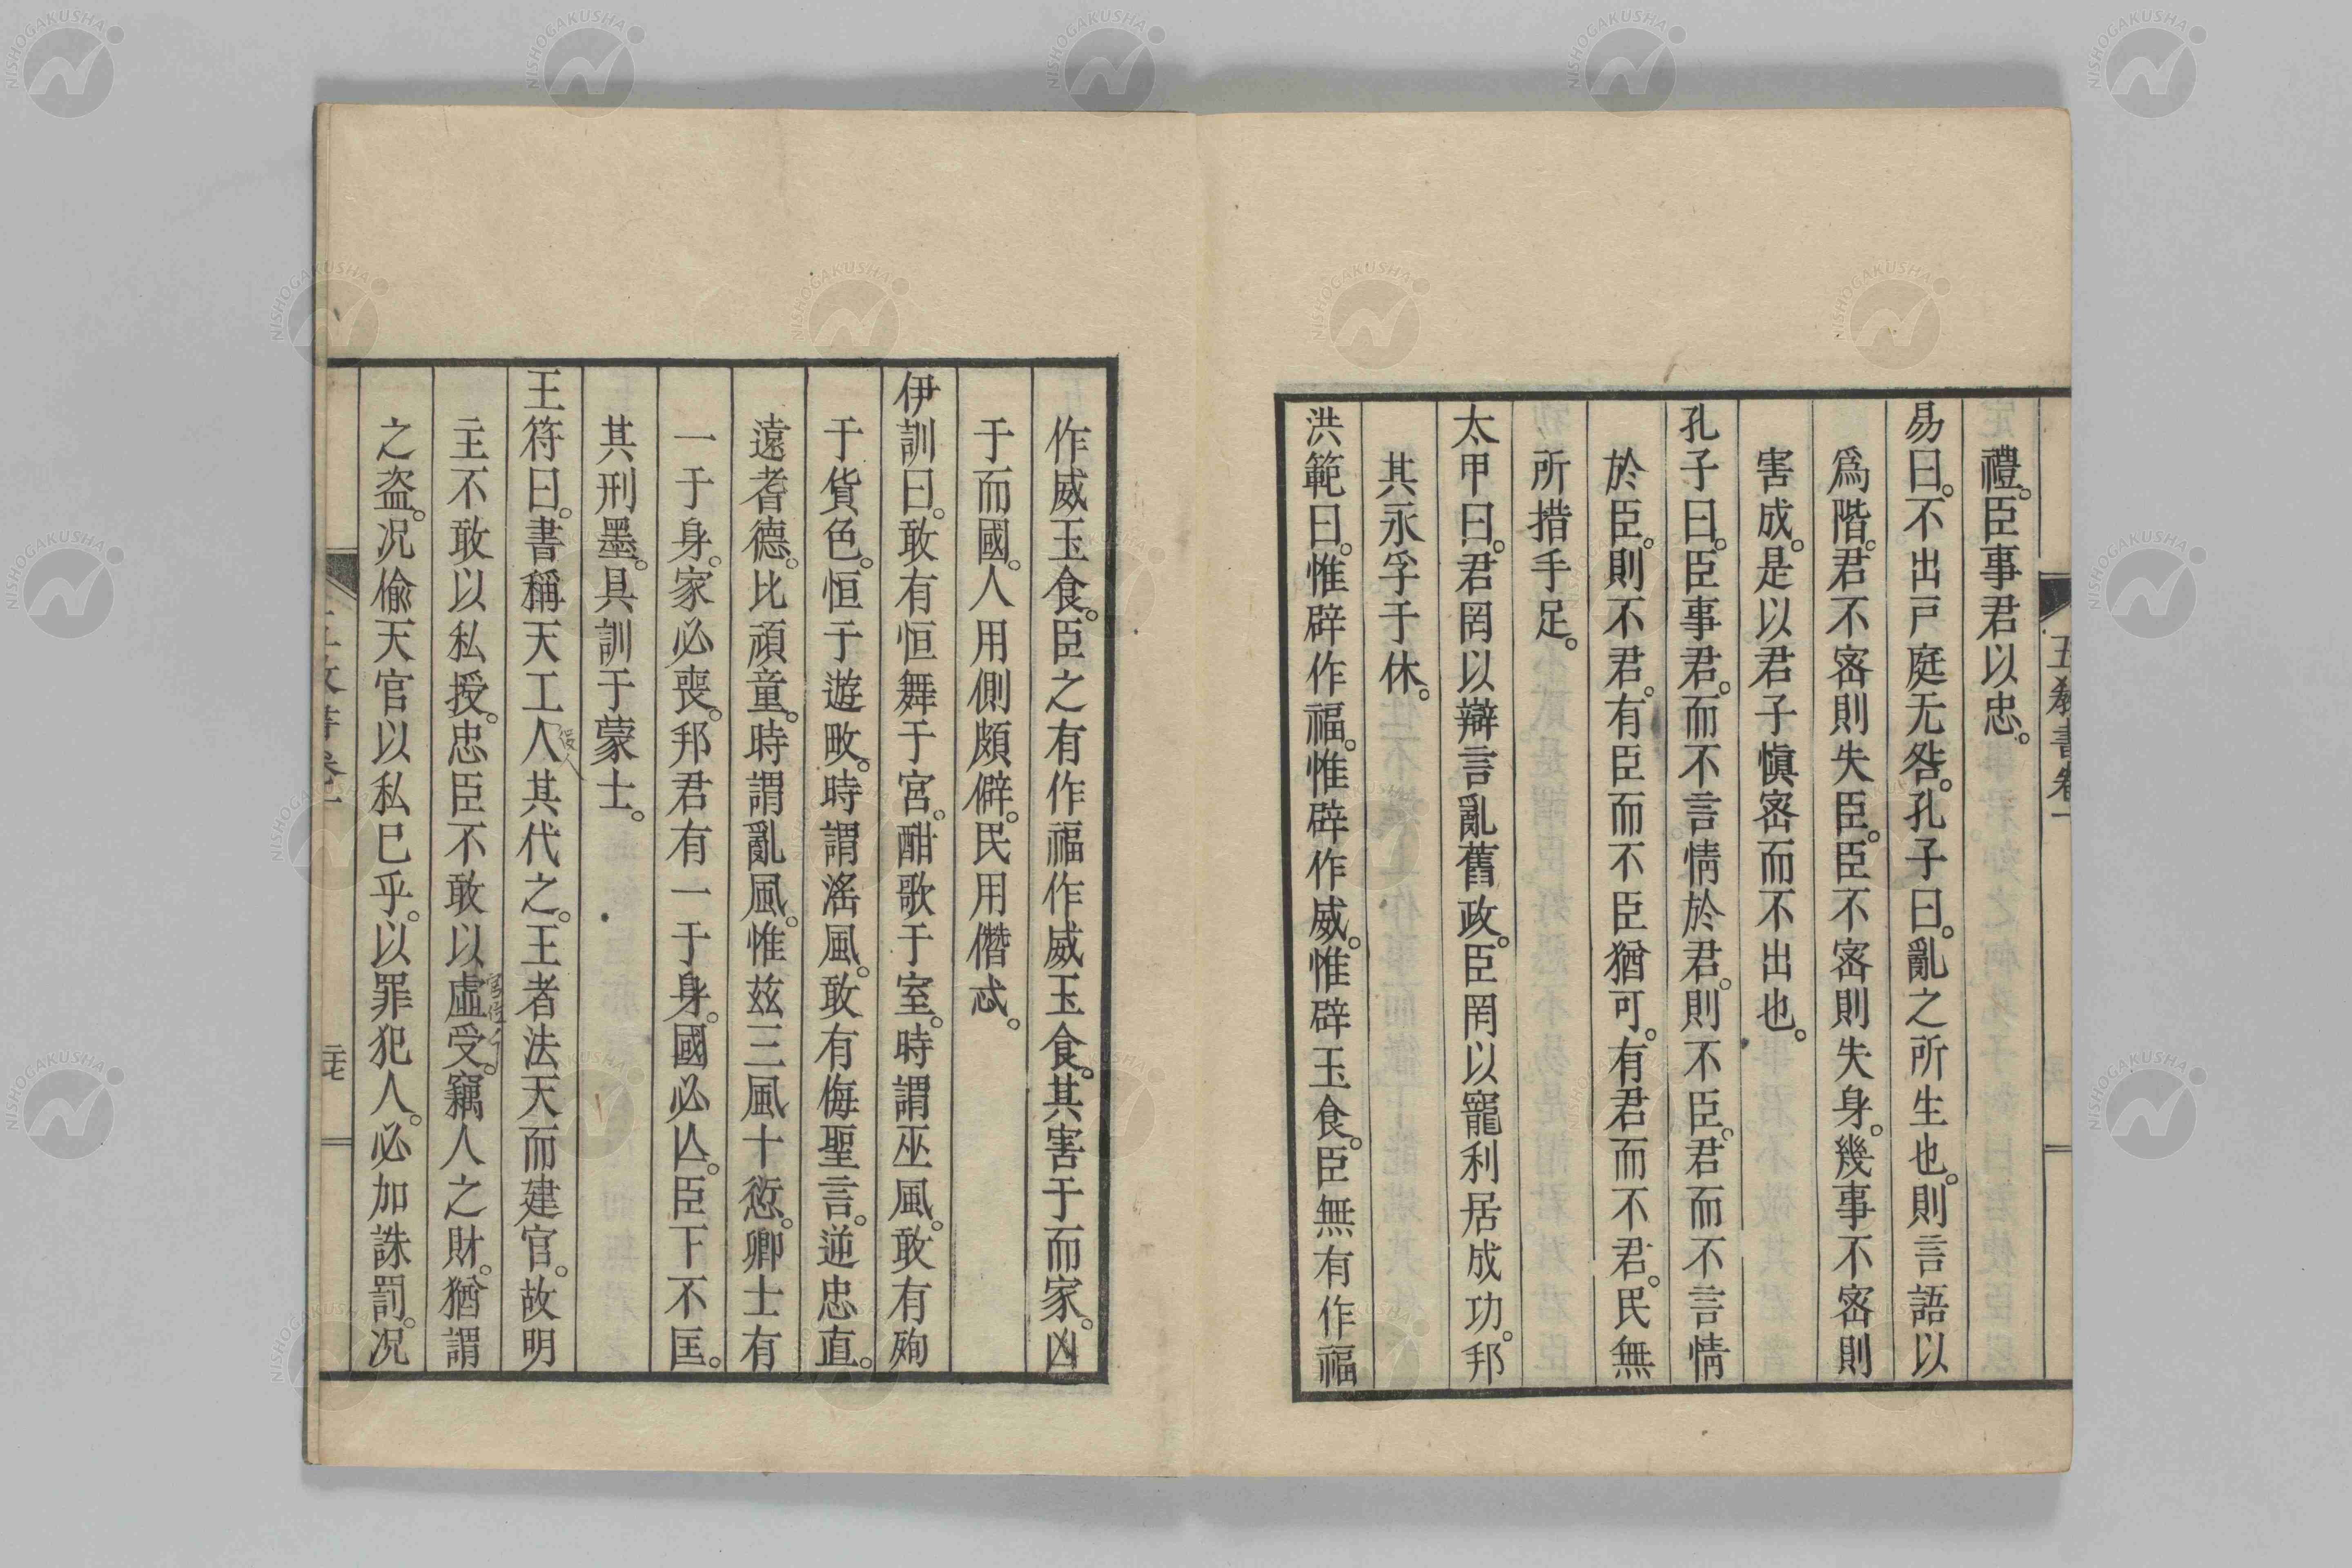 五教書卷一
禮。臣事君以忠。
易曰。不出戸庭无咎。孔子曰。亂之所生也。則言語以
爲階。君不密則失臣。臣不密則失身。幾事不密則
害成。是以君子愼密而不出也。
孔子曰。臣事君。而不言情於君。則不臣。君而不言情
於臣。則不君。有臣而不臣猶可。有君而不君。民無
所措手足。
太甲曰。君罔以辯言亂舊政。臣罔以寵利居成功。邦
其永孚于休。
洪範曰。惟辟作福。惟辟作威。惟辟玉食。臣無有作福
作威玉食。臣之有作福作威玉食。其害于而家。凶
于而國。人用側頗僻。民用僭忒。
伊訓曰。敢有恒舞于宮。酣歌于室。時謂巫風。敢有殉
于貨色。恒于遊畋。時謂滛風。敢有侮聖言。逆忠直。
遠耆德。比頑童。時謂亂風。惟玆三風十愆。卿士有
一于身。家必喪。邦君有一于身。國必亾。臣下不匡。
其刑墨。具訓于蒙士。
王符曰。書稱天工人其代之。王者法天而建官。故明
主不敢以私授。忠臣不敢以虛受。竊人之財。猶謂
之盗。况偸天官以私已乎。以罪犯人。必加誅罰。况
NISHOGAKUSHA